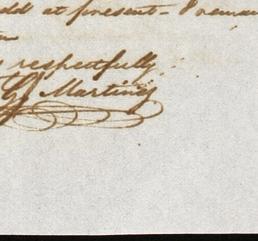 add at present - I remain
respectfully
G Martiney